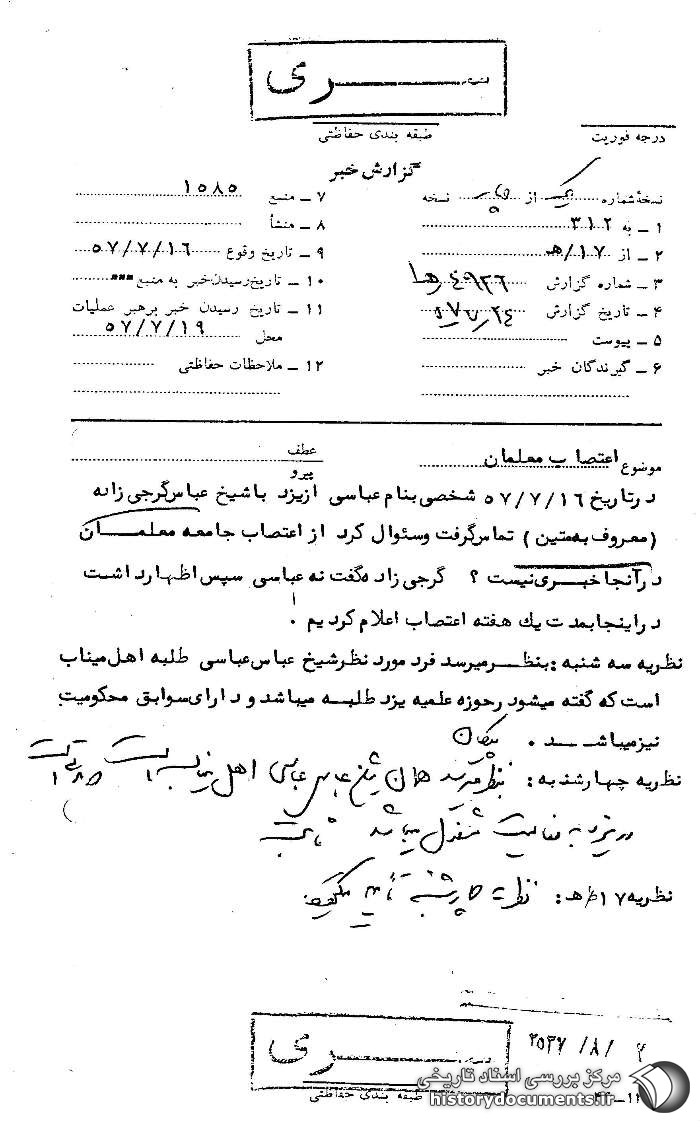 سری
طبقه بندی حفاظتی
درجه فوریت
گزارش خبر
نسخهٔ شماره از نسخه
۱ – به ۳۱۲
۲ – از ۱۷/هـ
۳ – شماره گزارش
۴ – تاریخ گزارش
۵ – پیوست
۶ – گیرندگان خبر
۷ – منبع ۱۵۸۵
۸ – منشأ
۹ – تاریخ وقوع ۵۷/۷/۱۶
۱۰ – تاریخ رسیدن خبر به منبع
۱۱ – تاریخ رسیدن خبر برهبر عملیات
محل ۵۷/۷/۱۹
۱۲ – ملاحظات حفاظتی
موضوع اعتصاب معلمان
عطف
پیرو
در تاریخ ۵۷/۷/۱۶ شخصی بنام عباسی از یزد با شیخ عباس گرجی زاده
(معروف به متین) تماس گرفت و سئوال کرد از اعتصاب جامعه معلمان
در آنجا خبری نیست ؟ گرجی زاده گفت نه عباسی سپس اظهار داشت
در اینجا بمدت یک هفته اعتصاب اعلام کردیم .
نظریه سه شنبه : بنظر میرسد فرد مورد نظر شیخ عباس عباسی طلبه اهل میناب
است که گفته میشود رحوزه علمیه یزد طلبه میباشد و دارای سوابق محکومیت
نیز میباشد .
نظریه چهارشنبه : بنظر میرسد همان شیخ عباس عباسی اهل میناب است
در یزد به فعالیت مشغول میباشد
نظریه ۱۷/هـ : نظریه چهارشنبه
۲۵۳۷/۸/۴
سری
طبقه بندی حفاظتی
مرکز بررسی اسناد تاریخی
historydocuments.ir